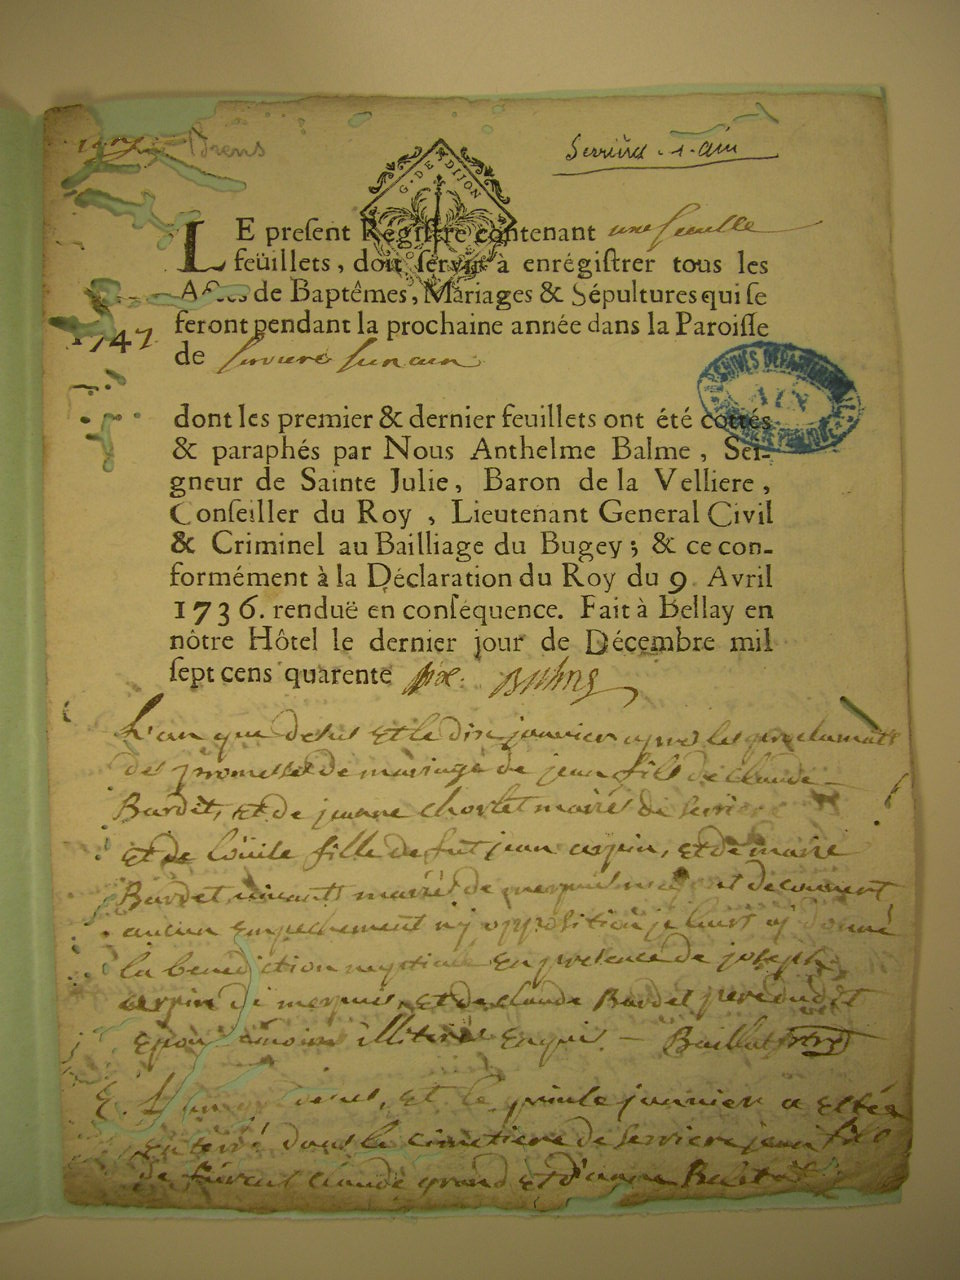 Brens
Serrières s. Ain
G. DE DIJON
LE preſent Regiſtre contenant une feuille
feüillets, doit ſervir à enrégiſtrer tous les
Actes de Baptêmes, Mariages & Sépultures qui ſe
feront pendant la prochaine année dans la Paroiſſe
1747
de
ARCHIVES DÉPARTEMENTALES
AIN
dont les premier & dernier feuillets ont été cottés
& paraphés par Nous Anthelme Balme, Sei-
gneur de Sainte Julie, Baron de la Velliere,
Conſeiller du Roy, Lieutenant General Civil
& Criminel au Bailliage du Bugey; & ce con-
formément à la Déclaration du Roy du 9 Avril
1736. renduë en conſéquence. Fait à Bellay en
nôtre Hôtel le dernier jour de Décembre mil
ſept cens quarente ſix. Balme
L'an que desus et le dix janvier apres les proclamats
des promesses de mariage de jean fils de Claude
Bardet, et de jeanne chorlet mariés de Serriere
et de loüise fille de fut jean arpin, et de marie
Bardet vivants mariés de decouvert
aucun empechement nj opposition je leurs aj donné
la benediction nuptiale en presence de joseph
arpin de et de claude Bardet pere dudit
epoux temoins illiterés enquis. — Baillat
L'an que desus, et le janvier a estée
enterré dans le cimetiere de Serriere jean fils
de claude grand et d'anne